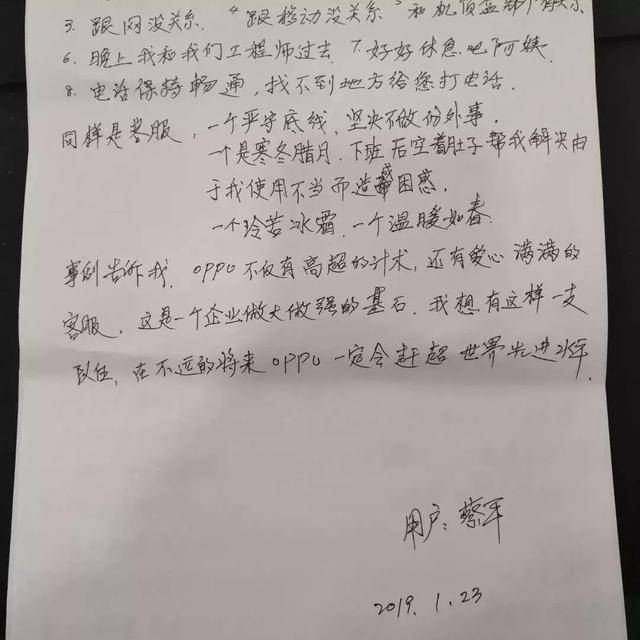 3. 跟网没关系. 4 跟移动没关系 5 和机顶盒
6. 晚上我和我们工程师过去. 7. 好好休息吧阿姨.
8. 电话保持畅通, 找不到地方给您打电话.
同样是客服, 一个严守底线, 坚决不做份外事.
一个是寒冬腊月, 下班后空着肚子帮我解决由
于我使用不当而造成困惑.
一个冷若冰霜, 一个温暖如春.
事例告诉我, OPPO不仅有高超的计术, 还有爱心满满的
客服, 这是一个企业做大做强的基石. 我想有这样一支
队伍, 在不远的将来OPPO一定会赶超世界先进水平.
用户: 蔡军
2019. 1. 23